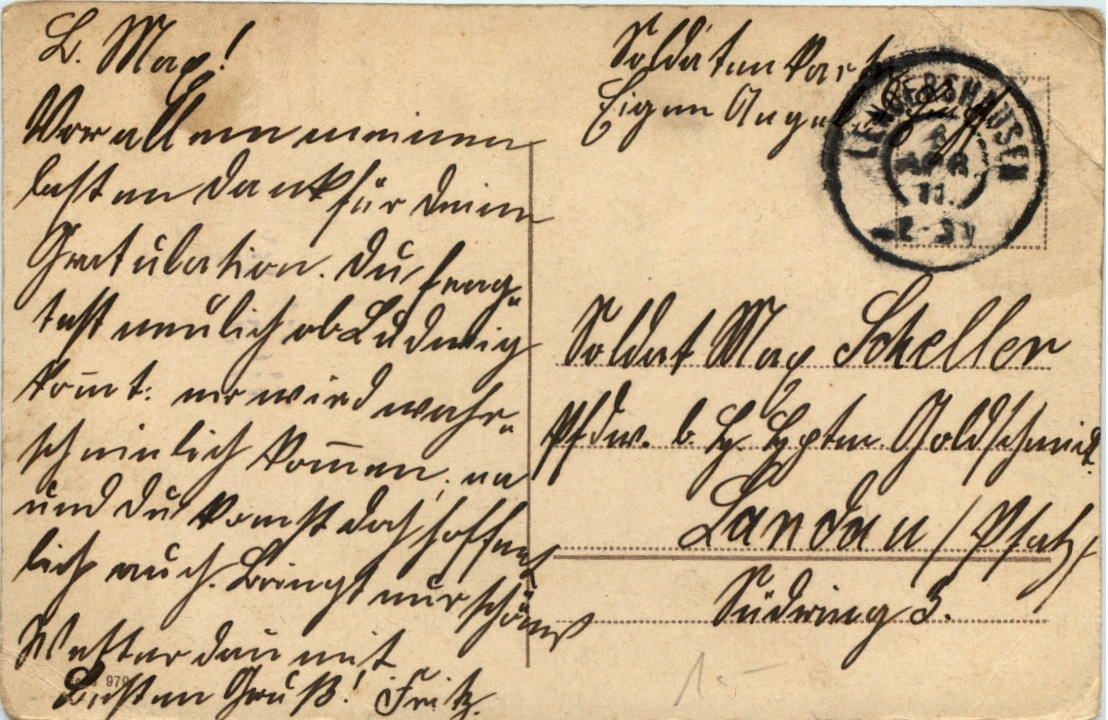 L. Max!
Vor allem meinen
besten Dank für Deine
Gratulation. Du frag-
test neulich ob Ludwig
kom̄t: er wird wahr-
scheinlich kom̄en, na
und Du komst doch hoffent
lich auch. Bringt nur schönes
Wetter dan mit
Besten Gruß! Fritz.
979
Soldatenkarte
Eigen Angel
LEMBERSHAUSEN
APR
11.
Soldat Max Scheller
Pfdw. b. H. Hptm. Goldschmidt
Landau / Pfalz /
Südring 3.